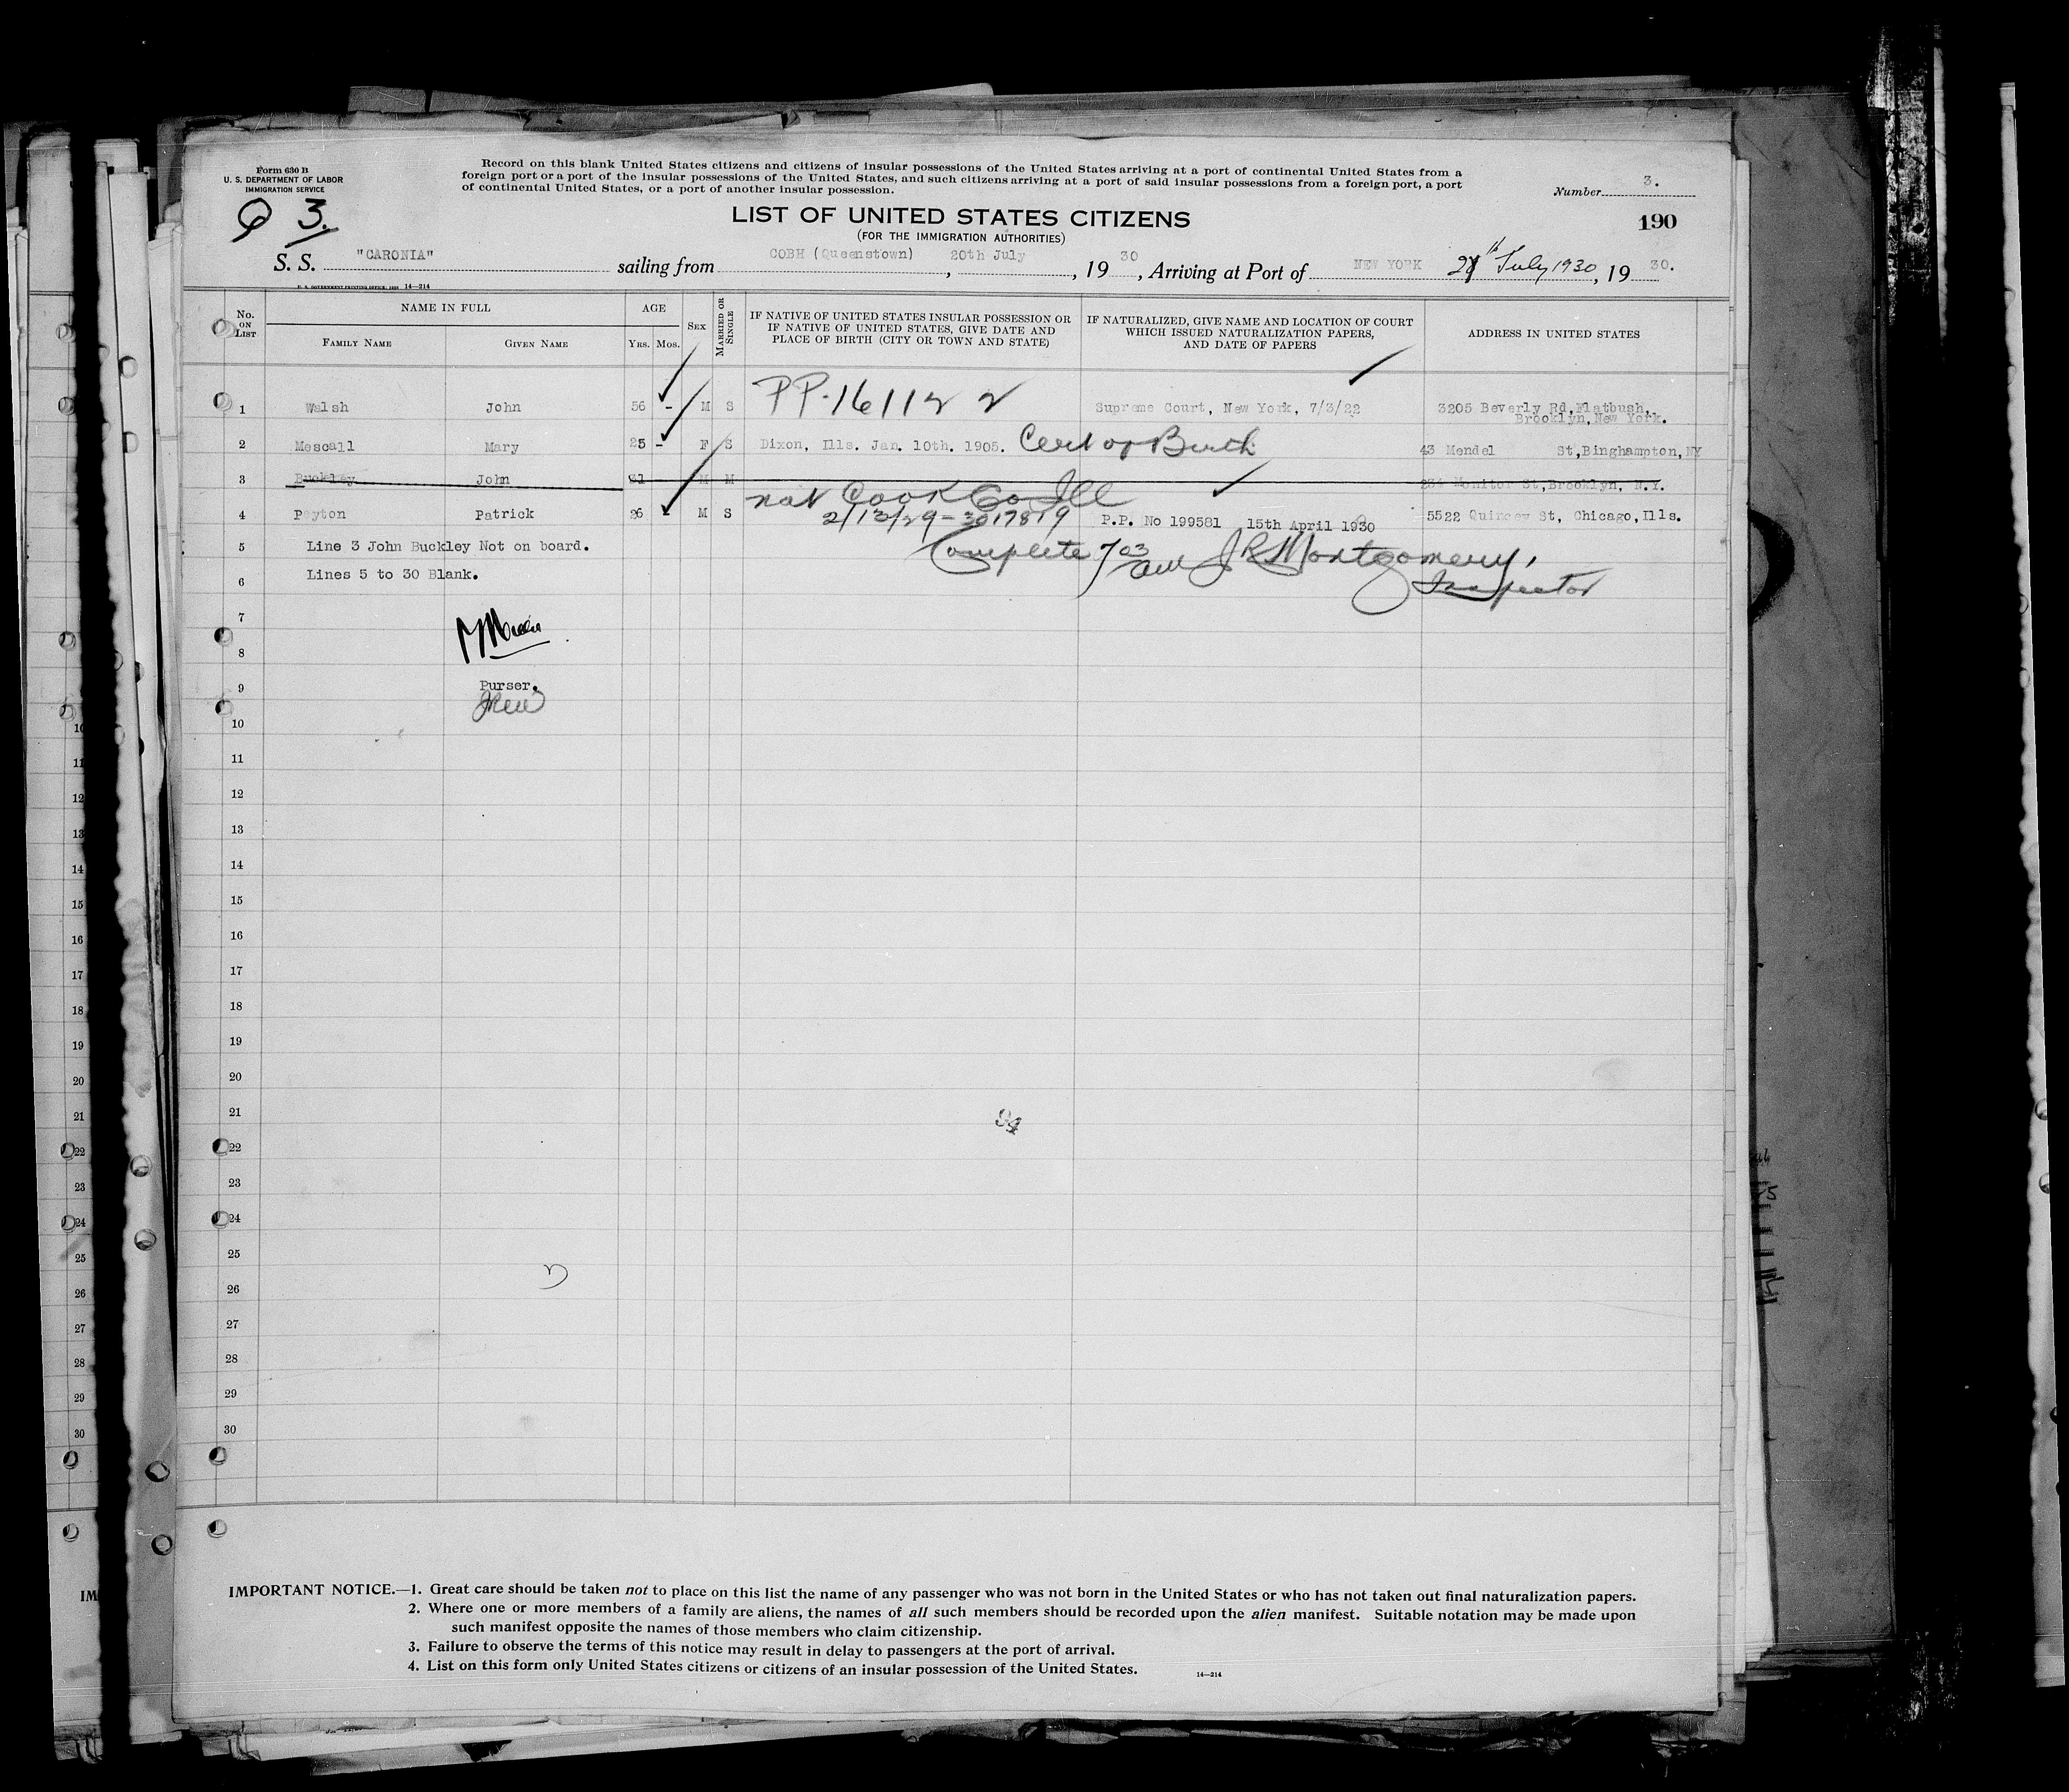 Form 630 B
U. S. DEPARTMENT OF LABOR
IMMIGRATION SERVICE
Record on this blank United States citizens and citizens of insular possessions of the United States arriving at a port of continental United States from a
foreign port or a port of the insular possessions of the United States, and such citizens arriving at a port of said insular possessions from a foreign port, a port
of continental United States, or a port of another insular possession.
Number 3.
3.
LIST OF UNITED STATES CITIZENS
190
(FOR THE IMMIGRATION AUTHORITIES)
S. S. "CARONIA" sailing from COBH (Queenstown), 20th July, 1930, Arriving at Port of NEW YORK July 1930, 1930.
U. S. GOVERNMENT PRINTING OFFICE: 14—214
No. ON LIST
NAME IN FULL
FAMILY NAME GIVEN NAME
AGE
YRS. MOS.
SEX
MARRIED OR SINGLE
IF NATIVE OF UNITED STATES INSULAR POSSESSION OR
IF NATIVE OF UNITED STATES, GIVE DATE AND
PLACE OF BIRTH (CITY OR TOWN AND STATE)
IF NATURALIZED, GIVE NAME AND LOCATION OF COURT
WHICH ISSUED NATURALIZATION PAPERS,
AND DATE OF PAPERS
ADDRESS IN UNITED STATES
1 Walsh John 56 - M S Supreme Court, New York, 7/3/22 3205 Beverly Rd, Flatbush,
Brooklyn, New York.
2 Mescall Mary 25 - F S Dixon, Ills. Jan. 10th. 1905. Cert of Birth 43 Mendel St, Binghampton, NY
3 Buckley John 31 M M 234 Monitor St, Brooklyn, N.Y.
nat Cook Co Ill
4 Peyton Patrick 26 - M S 2/13/29 - 3017819 P.P. No 199581 15th April 1930 5522 Quincey St, Chicago, Ills.
5 Line 3 John Buckley Not on board. Complete J R Montgomery,
6 Lines 5 to 30 Blank. Inspector
7
8
9 Purser.
10
11
12
13
14
15
16
17
18
19
20
21
22
23
24
25
26
27
28
29
30
IMPORTANT NOTICE.—1. Great care should be taken not to place on this list the name of any passenger who was not born in the United States or who has not taken out final naturalization papers.
2. Where one or more members of a family are aliens, the names of all such members should be recorded upon the alien manifest. Suitable notation may be made upon
such manifest opposite the names of those members who claim citizenship.
3. Failure to observe the terms of this notice may result in delay to passengers at the port of arrival.
4. List on this form only United States citizens or citizens of an insular possession of the United States.
14—214